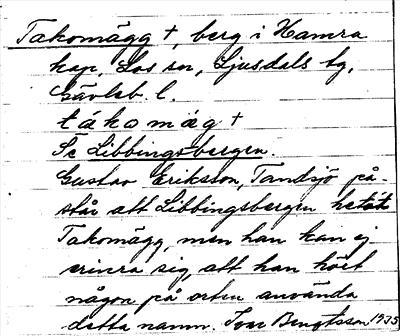 Takomägg †, berg i Hamra
kap, Los sn, Ljusdals tg,
Gävleb. l.
tákomäg †
Se Libbingsbergen.
Gustav Eriksson, Tandsjö på-
står att Libbingsbergen hetat
Takomägg, men han kan ej
erinra sig, att han hört
någon på orten använda
detta namn. Ivar Bengtsson 1935